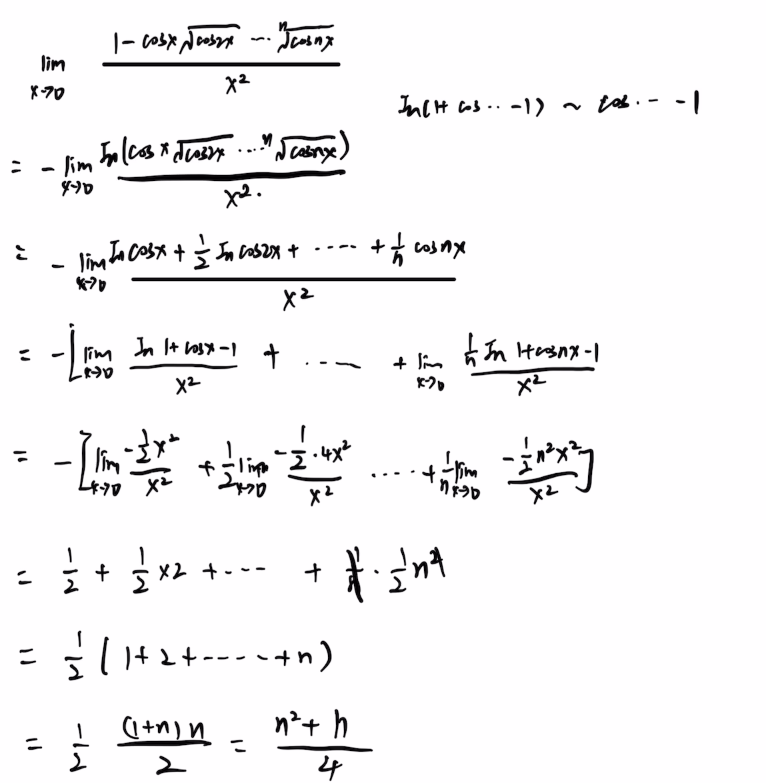 lim x→0 (1 - cosx √cos2x ··· ⁿ√cosnx) / x²
In(1+ cos··· -1) ~ cos··· -1
= - lim x→0 In(cosx √cos2x ··· ⁿ√cosnx) / x².
= - lim x→0 (In cosx + 1/2 In cos2x + ····· + 1/n cosnx) / x²
= -[lim x→0 (In 1+cosx-1) / x² + ····· + lim x→0 (1/n In 1+cosnx-1) / x²
= -[lim x→0 (-1/2 x²) / x² + 1/2 lim x→0 (-1/2 · 4x²) / x² ····· + 1/n lim x→0 (-1/2 n²x²) / x²]
= 1/2 + 1/2 ×2 + ···· + 1/n · 1/2 n²
= 1/2 (1+2+·····+n)
= 1/2 (1+n)n / 2 = (n²+n) / 4